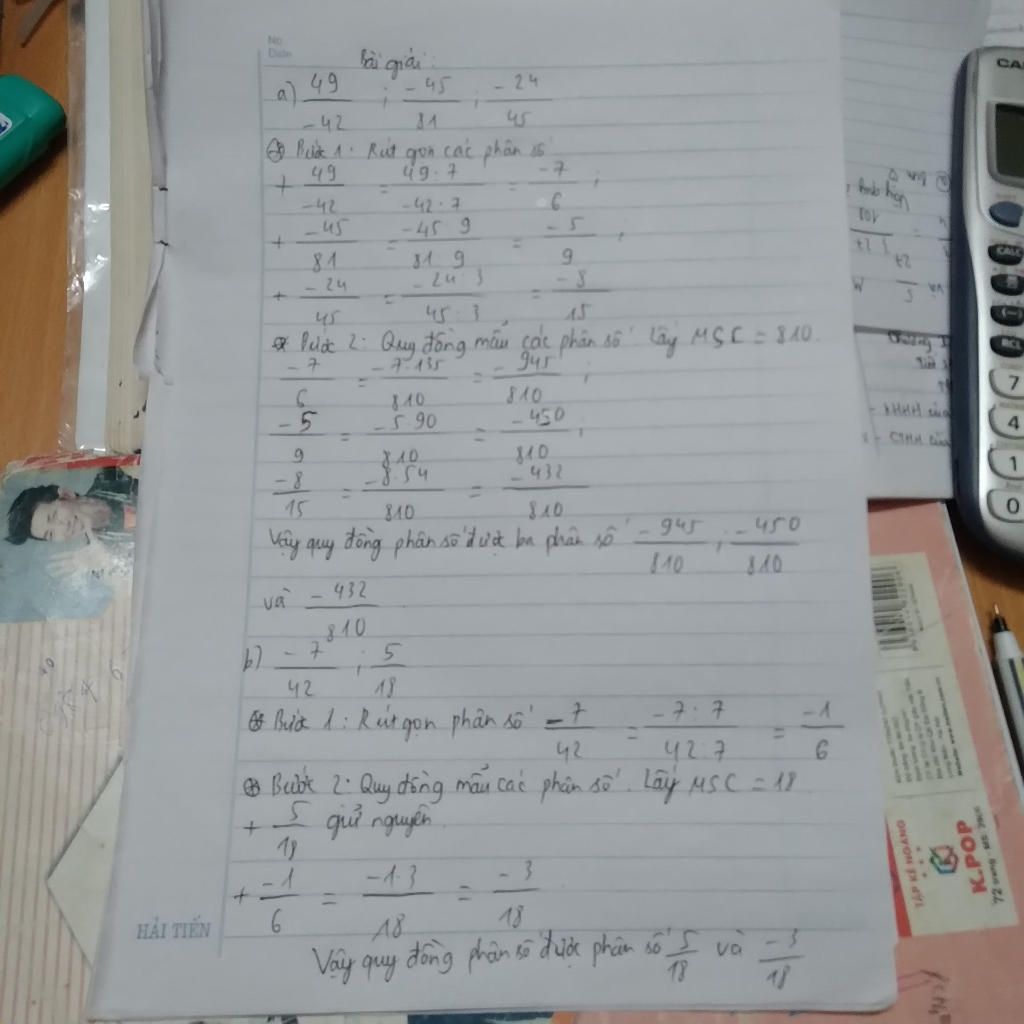 No.
Date
Bài giải:
a) 49/-42 ; -45/81 ; -24/45
⊛ Bước 1: Rút gọn các phân số
+ 49/-42 = 49:7/-42:7 = -7/6 ;
+ -45/81 = -45:9/81:9 = -5/9 ;
+ -24/45 = -24:3/45:3 = -8/15
⊛ Bước 2: Quy đồng mẫu các phân số. Lấy MSC = 810.
-7/6 = -7·135/810 = -945/810 ;
-5/9 = -5·90/810 = -450/810 ;
-8/15 = -8·54/810 = -432/810
Vậy quy đồng phân số được ba phân số -945/810 ; -450/810
và -432/810
b) -7/42 ; 5/18
⊛ Bước 1: Rút gọn phân số -7/42 = -7:7/42:7 = -1/6
⊛ Bước 2: Quy đồng mẫu các phân số. Lấy MSC = 18
+ 5/18 giữ nguyên.
+ -1/6 = -1·3/18 = -3/18
Vậy quy đồng phân số được phân số 5/18 và -3/18
HẢI TIẾN
CALC
7
4
1
0
TẬP KẺ NGANG
K.POP
72 trang